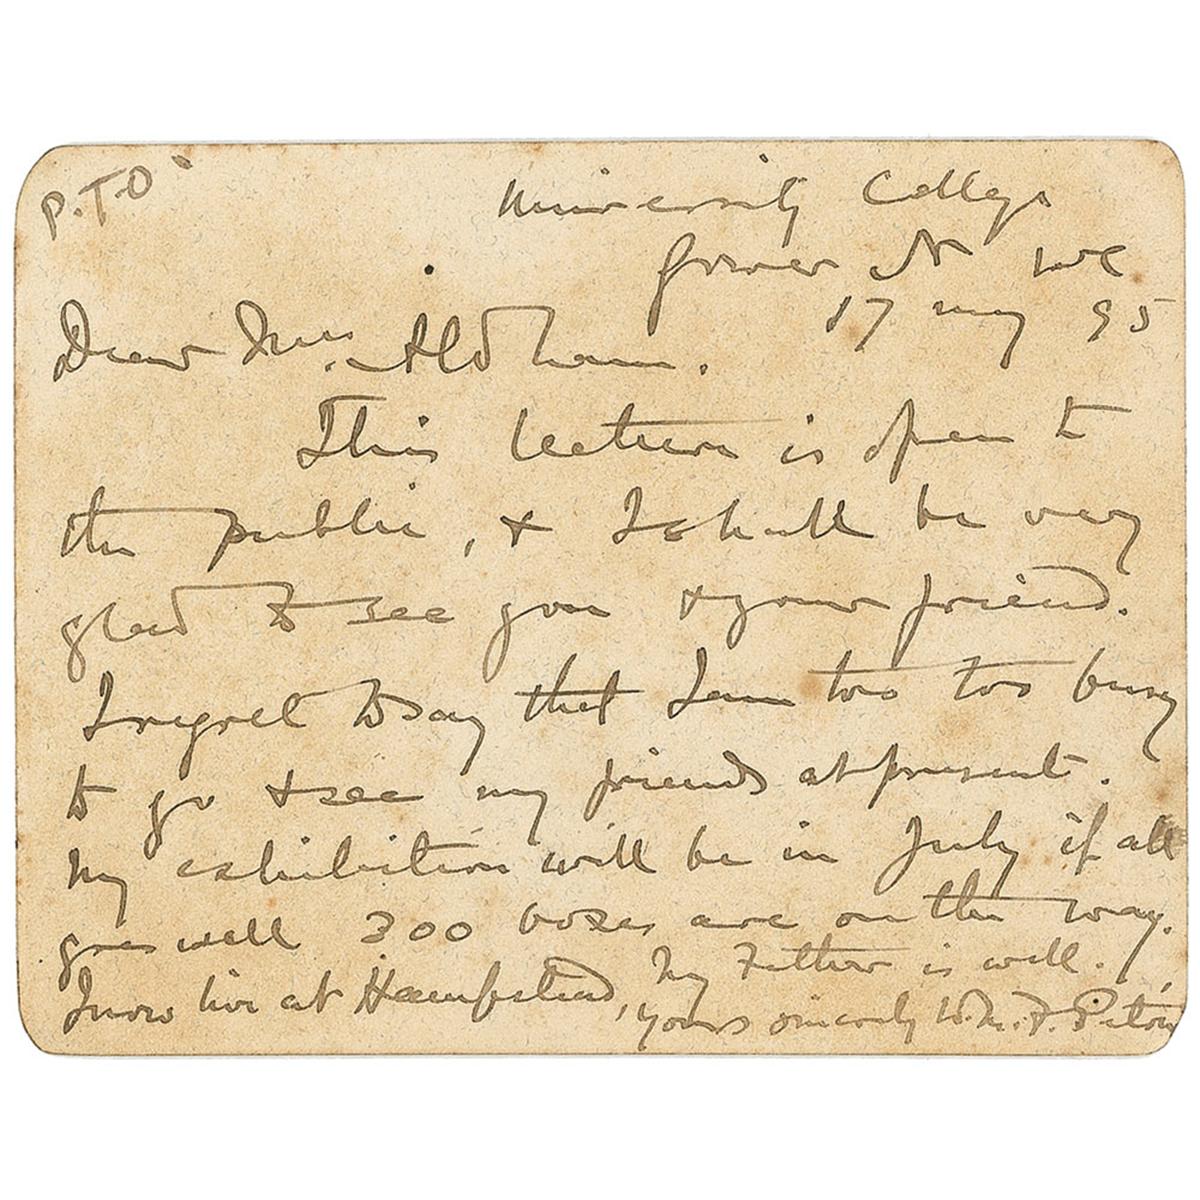 P.T.O
University College
Gower St WC
17 May 95
Dear Mrs. Aldham.
This lecture is open to
the public, & I shall be very
glad to see you & your friend.
I regret to say that I am too too busy
to go & see my friends at present.
My exhibition will be in July if all
goes well 300 boxes are on the way.
My Father is well.
I now live at Hampstead,
yours sincerely W.M.F. Petrie